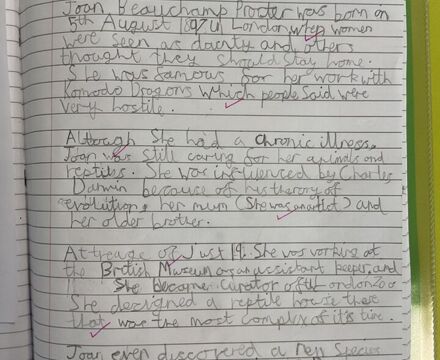 Joan Beauchamp Procter was born on
5th August 1897 in London when women
were seen as dainty and others
thought they should stay home.
She was famous for her work with
Komodo Dragons which people said were
very hostile.
Although she had a chronic illness,
Joan was still caring for her animals and
reptiles. She was influenced by Charles
Darwin because of his therory of
evolution, her mum (She was an artist) and
her older brother.
At the age of Just 19. She was working at
the British Museum as an assistant keeper, and
She became curator of the London Zoo
She designed a reptile house there
that was the most complex of it's time.
Joan even discovered a new Species